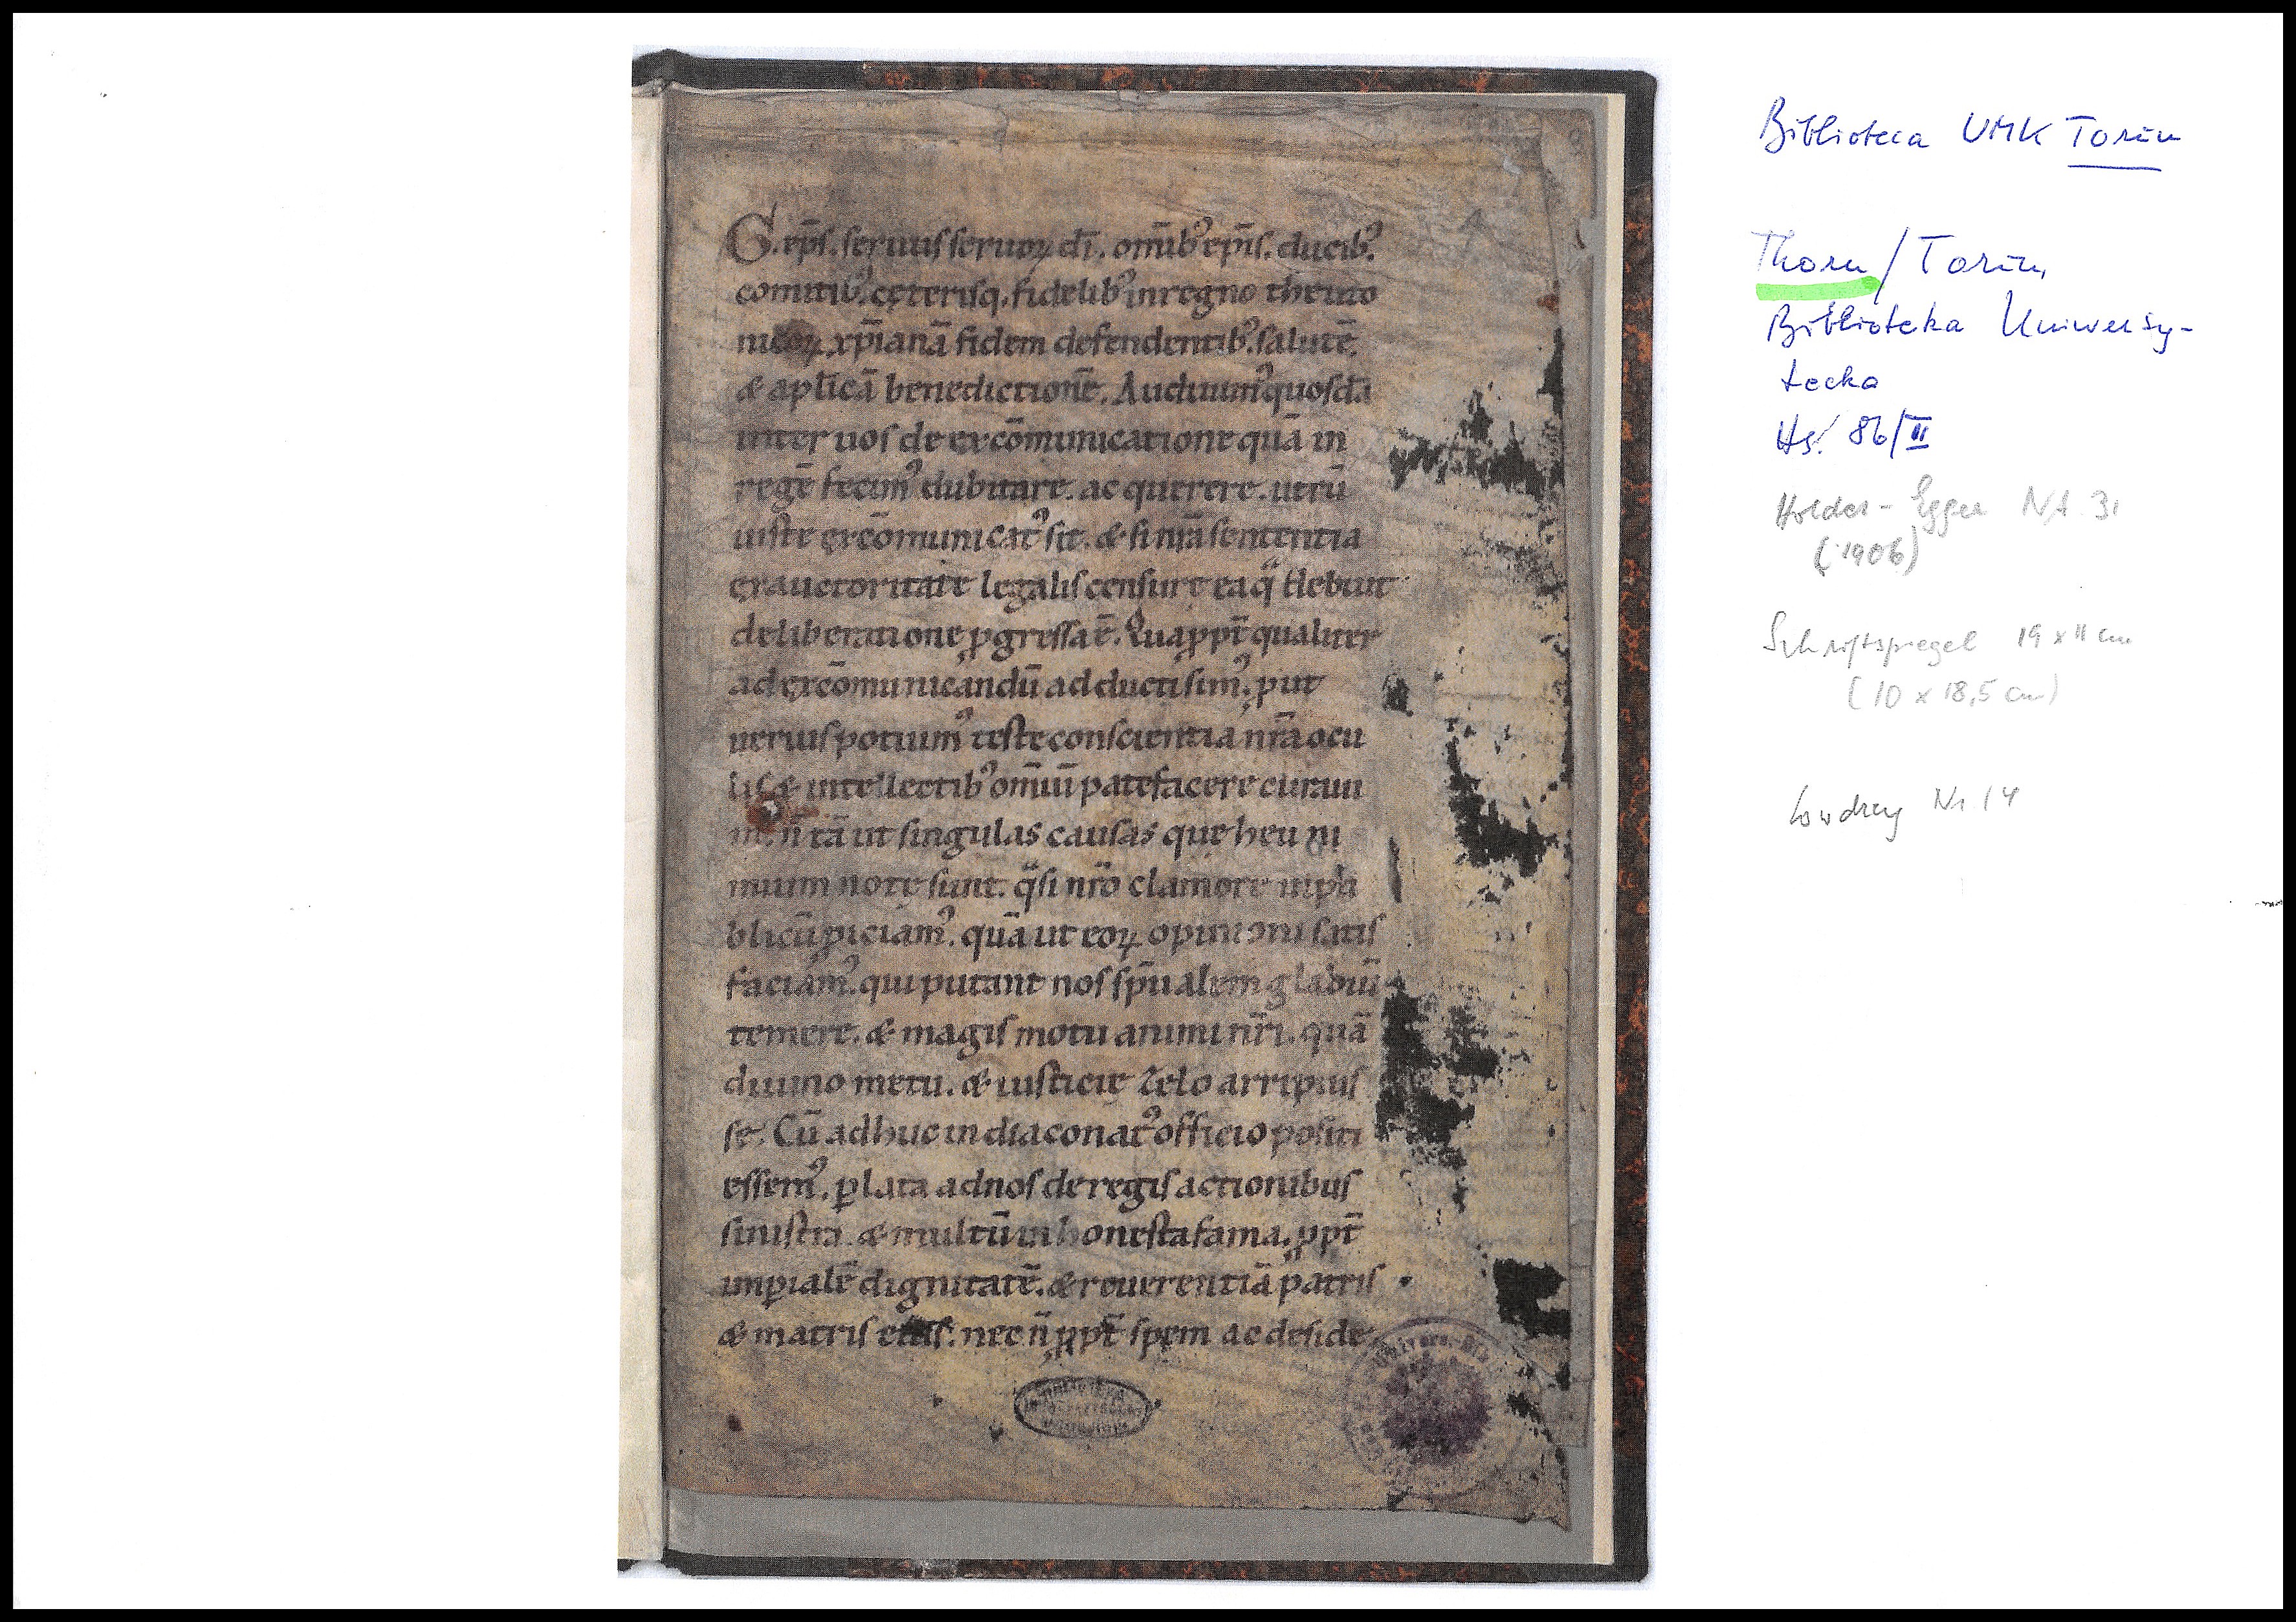 G. ep̄s. seruus seruoꝝ dī. om̄ib᾿ ep̄is. ducib᾿.
comitib᾿. cęterisq. fidelib᾿ in regno theuto
nicoꝝ xp̄ianā fidem defendentib᾿. salutē.
& aplīcā benedictionē. Audiuim᾿ quosdā
inter uos de excōmunicatione quā in
regē fecim᾿ dubitare. ac querere. utrū
iuste excōmunicat᾿ sit. & si nr̄a sententia
ex auctoritate legalis censurę ea q̄ debuit
deliberatione ꝓgressa ē. Quaꝓpt̄ qualiter
ad excōmunicandū adducti sim᾿. ꝓut
uerius potuim᾿ teste conscientia nr̄a ocu
lis & intellectib᾿ om̄iū patefacere curaui
m᾿. n̄ tā ut singulas causas que heu ni
mium notę sunt. q̄si nr̄o clamore in pu
blicū ꝓiciam᾿. quā ut eoꝝ opinioni satis
faciam᾿. qui putant nos sp̄ualem gladiū
temere. & magis motu animi nr̄i. quā
diuino metu. & iusticię zelo arripuis
se. Cū adhuc in diaconat᾿ officio positi
essem᾿. ꝑlata ad nos de regis actionibus
sinistra. & multū inhonesta fama. ꝓpt̄
imꝑialē dignitatē. & reuerentiā patris
& matris eius. nec n̄ ꝓpt̄ spem ac deside
Biblioteca UMK Torun
Thorn / Torun,
Biblioteka Uniwersy-
tecka
Hs. 86/II
Holder-Egger NA 31
(1906)
Schriftspiegel 19 x 11 cm
(10 x 18,5 cm)
Cowdrey Nr 14